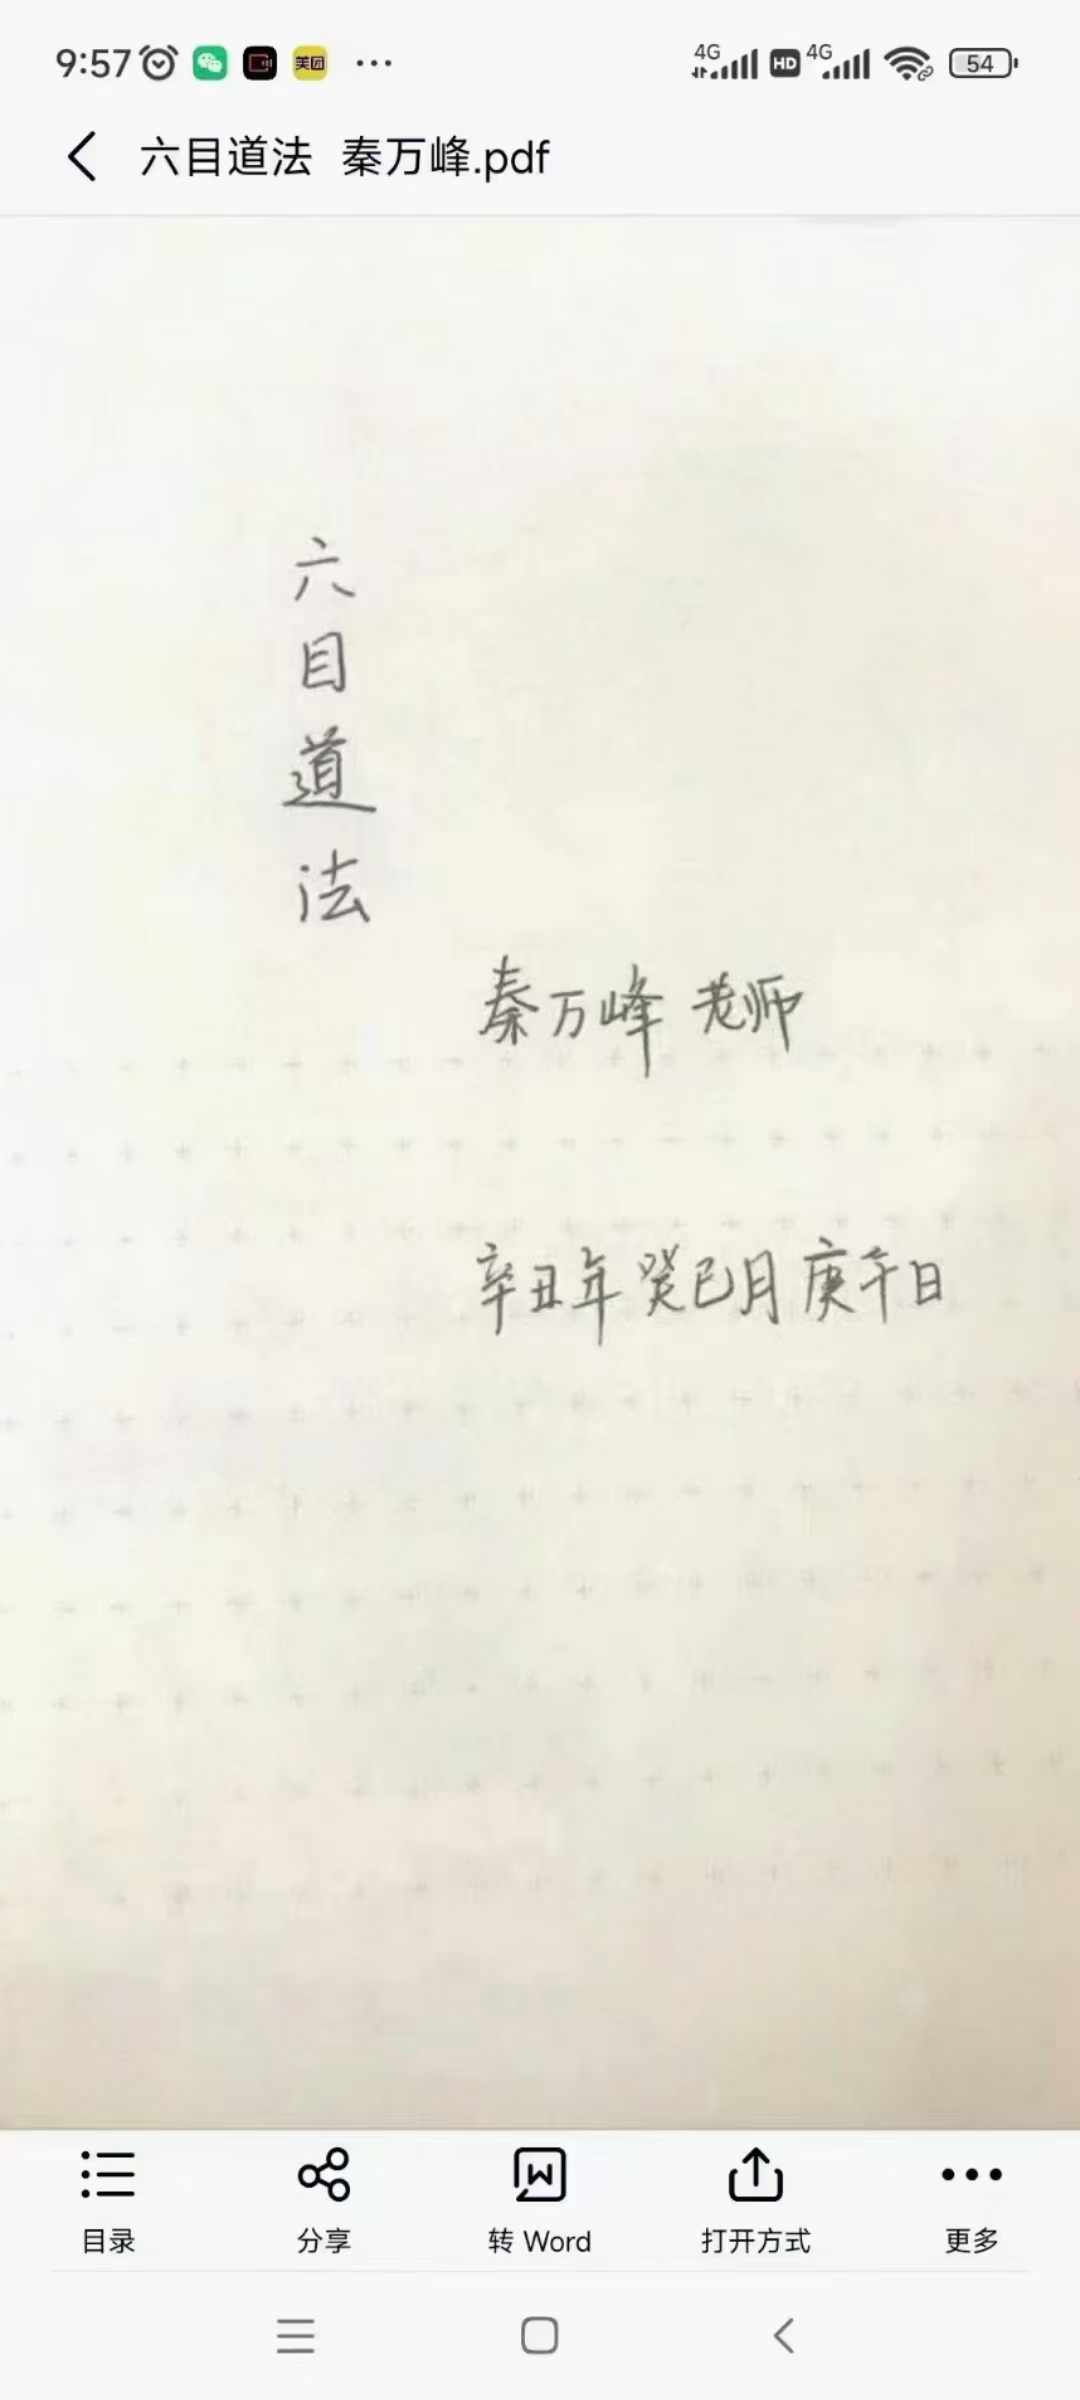 9:57 美团 ... 4G HD 4G 54
六目道法 秦万峰.pdf
六目道法
秦万峰 老师
辛丑年 癸巳月 庚午日
目录 分享 转 Word 打开方式 更多